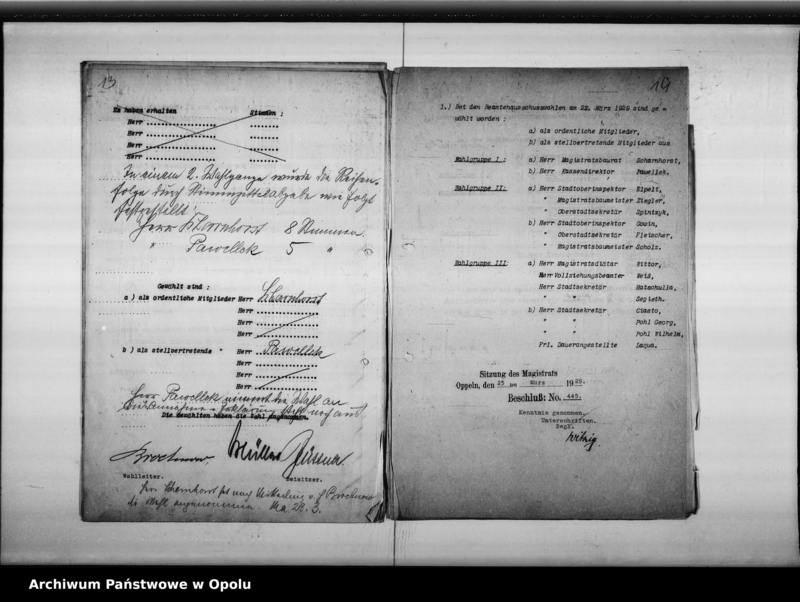 13
Es haben erhalten Stimmen :
Herr
Herr
Herr
Herr
In einem 2. Wahlgange wurde die Reihen-
folge durch Stimmzettelabgabe wie folgt
festgestellt:
Herr Scharnhorst 8 Stimmen
" Pawellek 5 "
Gewählt sind :
a ) als ordentliche Mitglieder Herr Scharnhorst
Herr
Herr
Herr
b ) als stellvertretende " Herr Pawellek
Herr
Herr
Herr
Herr Pawellek nimmt die Wahl an
Erklärung noch aus
Die Gewählten haben die Wahl angenommen.
Müller
Wahlleiter. Beisitzer.
Herr Scharnhorst hat nach
die Wahl angenommen
1.) Bei den Beamtenausschusswahlen am 22. März 1929 sind ge=
wählt worden :
a) als ordentliche Mitglieder,
b) als stellvertretende Mitglieder aus
Wahlgruppe I.: a) Herr Magistratsbaurat Scharnhorst,
b) Herr Kassendirektor Pawellek,
Wahlgruppe II: a) Herr Stadtoberinspektor Elpelt,
" Magistratsbaumeister Ziegler,
" Oberstadtsekretär Spintzyk,
b) Herr Stadtoberinspektor
" Oberstadtsekretär Fleischer,
" Magistratsbaumeister Scholz.
Wahlgruppe III: a) Herr Magistratsdiätar Wittor,
Herr Vollziehungsbeamter Weiß,
Herr Stadtsekretär Matschulla,
" " Segieth.
b) Herr Stadtsekretär Ciasto,
" " Pohl Georg,
" " Pohl Wilhelm,
Frl. Dauerangestellte Laqua.
Sitzung des Magistrats
Oppeln, den 25 ten März 1929.
Beschluß: No. 445.
Kenntnis genommen.
Unterschriften.
Begl.
Archiwum Państwowe w Opolu